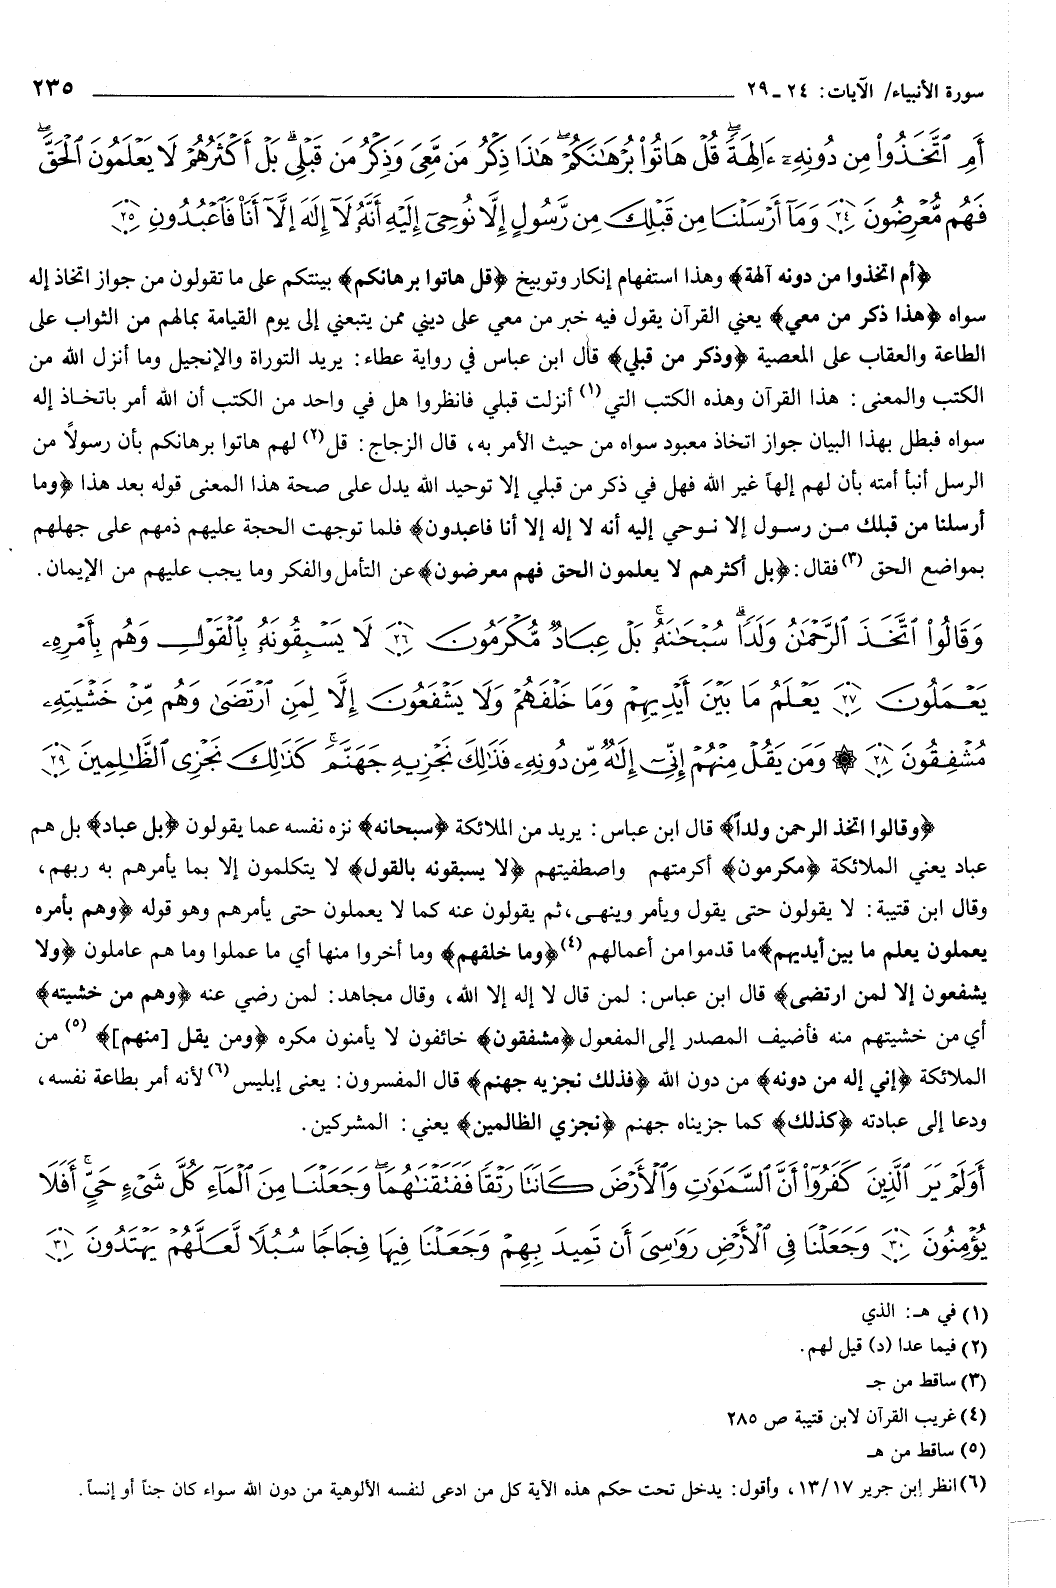 سورة الأنبياء/ الآيات: ٢٤ ـ ٢٩ ٢٣٥
أَمِ ٱتَّخَذُوا۟ مِن دُونِهِۦٓ ءَالِهَةً ۖ قُلْ هَاتُوا۟ بُرْهَـٰنَكُمْ ۖ هَـٰذَا ذِكْرُ مَن مَّعِىَ وَذِكْرُ مَن قَبْلِى ۗ بَلْ أَكْثَرُهُمْ لَا يَعْلَمُونَ ٱلْحَقَّ ۖ
فَهُم مُّعْرِضُونَ ﴿٢٤﴾ وَمَآ أَرْسَلْنَا مِن قَبْلِكَ مِن رَّسُولٍ إِلَّا نُوحِىٓ إِلَيْهِ أَنَّهُۥ لَآ إِلَـٰهَ إِلَّآ أَنَا۠ فَٱعْبُدُونِ ﴿٢٥﴾
﴿أم اتخذوا من دونه آلهة﴾ وهذا استفهام إنكار وتوبيخ ﴿قل هاتوا برهانكم﴾ بينتكم على ما تقولون من جواز اتخاذ إله
سواه ﴿هذا ذكر من معي﴾ يعني القرآن يقول فيه خبر من معي على ديني ممن يتبعني إلى يوم القيامة بمالهم من الثواب على
الطاعة والعقاب على المعصية ﴿وذكر من قبلي﴾ قال ابن عباس في رواية عطاء: يريد التوراة والإنجيل وما أنزل الله من
الكتب والمعنى: هذا القرآن وهذه الكتب التي(١) أنزلت قبلي فانظروا هل في واحد من الكتب أن الله أمر باتخـاذ إله
سواه فبطل بهذا البيان جواز اتخاذ معبود سواه من حيث الأمر به، قال الزجاج: قل(٢) لهم هاتوا برهانكم بأن رسولاً من
الرسل أنبأ أمته بأن لهم إلهاً غير الله فهل في ذكر من قبلي إلا توحيد الله يدل على صحة هذا المعنى قوله بعد هذا ﴿وما
أرسلنا من قبلك مـن رسـول إلا نـوحي إليه أنه لا إله إلا أنا فاعبدون﴾ فلما توجهت الحجة عليهم ذمهم على جهلهم
بمواضع الحق (٣)فقال:﴿بل أكثرهم لا يعلمون الحق فهم معرضون﴾عن التأمل والفكر وما يجب عليهم من الإيمان.
وَقَالُوا۟ ٱتَّخَذَ ٱلرَّحْمَـٰنُ وَلَدًا ۗ سُبْحَـٰنَهُۥ ۚ بَلْ عِبَادٌ مُّكْرَمُونَ ﴿٢٦﴾ لَا يَسْبِقُونَهُۥ بِٱلْقَوْلِ وَهُم بِأَمْرِهِۦ
يَعْمَلُونَ ﴿٢٧﴾ يَعْلَمُ مَا بَيْنَ أَيْدِيهِمْ وَمَا خَلْفَهُمْ وَلَا يَشْفَعُونَ إِلَّا لِمَنِ ٱرْتَضَىٰ وَهُم مِّنْ خَشْيَتِهِۦ
مُشْفِقُونَ ﴿٢٨﴾ ۞ وَمَن يَقُلْ مِنْهُمْ إِنِّىٓ إِلَـٰهٌ مِّن دُونِهِۦ فَذَٰلِكَ نَجْزِيهِ جَهَنَّمَ ۚ كَذَٰلِكَ نَجْزِى ٱلظَّـٰلِمِينَ ﴿٢٩﴾
﴿وقالوا اتخذ الرحمن ولداً﴾ قال ابن عباس: يريد من الملائكة ﴿سبحانه﴾ نزه نفسه عما يقولون ﴿بل عباد﴾ بل هم
عباد يعني الملائكة ﴿مكرمون﴾ أكرمتهم واصطفيتهم ﴿لا يسبقونه بالقول﴾ لا يتكلمون إلا بما يأمرهم به ربهم،
وقال ابن قتيبة: لا يقولون حتى يقول ويأمر وينهى،ثم يقولون عنه كما لا يعملون حتى يأمرهم وهو قوله ﴿وهم بأمره
يعملون يعلم ما بين أيديهم﴾ما قدموا من أعمالهم (٤)﴿وما خلفهم﴾ وما أخروا منها أي ما عملوا وما هم عاملون ﴿ولا
يشفعون إلا لمن ارتضى﴾ قال ابن عباس: لمن قال لا إله إلا الله، وقال مجاهد: لمن رضي عنه ﴿وهم من خشيته﴾
أي من خشيتهم منه فأضيف المصدر إلى المفعول ﴿مشفقون﴾ خائفون لا يأمنون مكره ﴿ومن يقل [منهم]﴾ (٥) من
الملائكة ﴿إني إله من دونه﴾ من دون الله ﴿فذلك نجزيه جهنم﴾ قال المفسرون: يعنى إبليس(٦) لأنه أمر بطاعة نفسه،
ودعا إلى عبادته ﴿كذلك﴾ كما جزيناه جهنم ﴿نجزي الظالمين﴾ يعني: المشركين.
أَوَلَمْ يَرَ ٱلَّذِينَ كَفَرُوٓا۟ أَنَّ ٱلسَّمَـٰوَٰتِ وَٱلْأَرْضَ كَانَتَا رَتْقًا فَفَتَقْنَـٰهُمَا ۖ وَجَعَلْنَا مِنَ ٱلْمَآءِ كُلَّ شَىْءٍ حَىٍّ ۚ أَفَلَا
يُؤْمِنُونَ ﴿٣٠﴾ وَجَعَلْنَا فِى ٱلْأَرْضِ رَوَٰسِىَ أَن تَمِيدَ بِهِمْ وَجَعَلْنَا فِيهَا فِجَاجًا سُبُلًا لَّعَلَّهُمْ يَهْتَدُونَ ﴿٣١﴾
(١) في هـ: الذي
(٢) فيما عدا (د) قيل لهم.
(٣) ساقط من جـ
(٤) غريب القرآن لابن قتيبة ص ٢٨٥
(٥) ساقط من هـ
(٦) انظر إبن جرير ١٣/١٧، وأقول: يدخل تحت حكم هذه الآية كل من ادعى لنفسه الألوهية من دون الله سواء كان جناً أو إنساً.